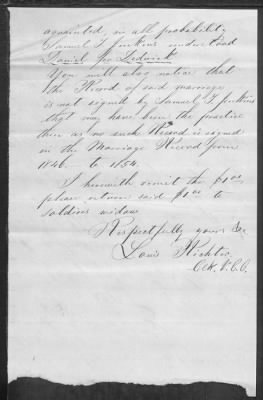 acquainted, in all probability
Samuel S. Jenkins understood
Daniel for Ludwick
You will also notice that
the Record of said marriage
is not signed by Samuel S. Jenkins
that may have been the practice
then as no such Record is signed
in the Marriage Record from
1846. to 1854.
I herewith remit the $1.00
please return said $1.00 to
soldiers widow
Respectfully yours &c
Louis Richter.
Clk.